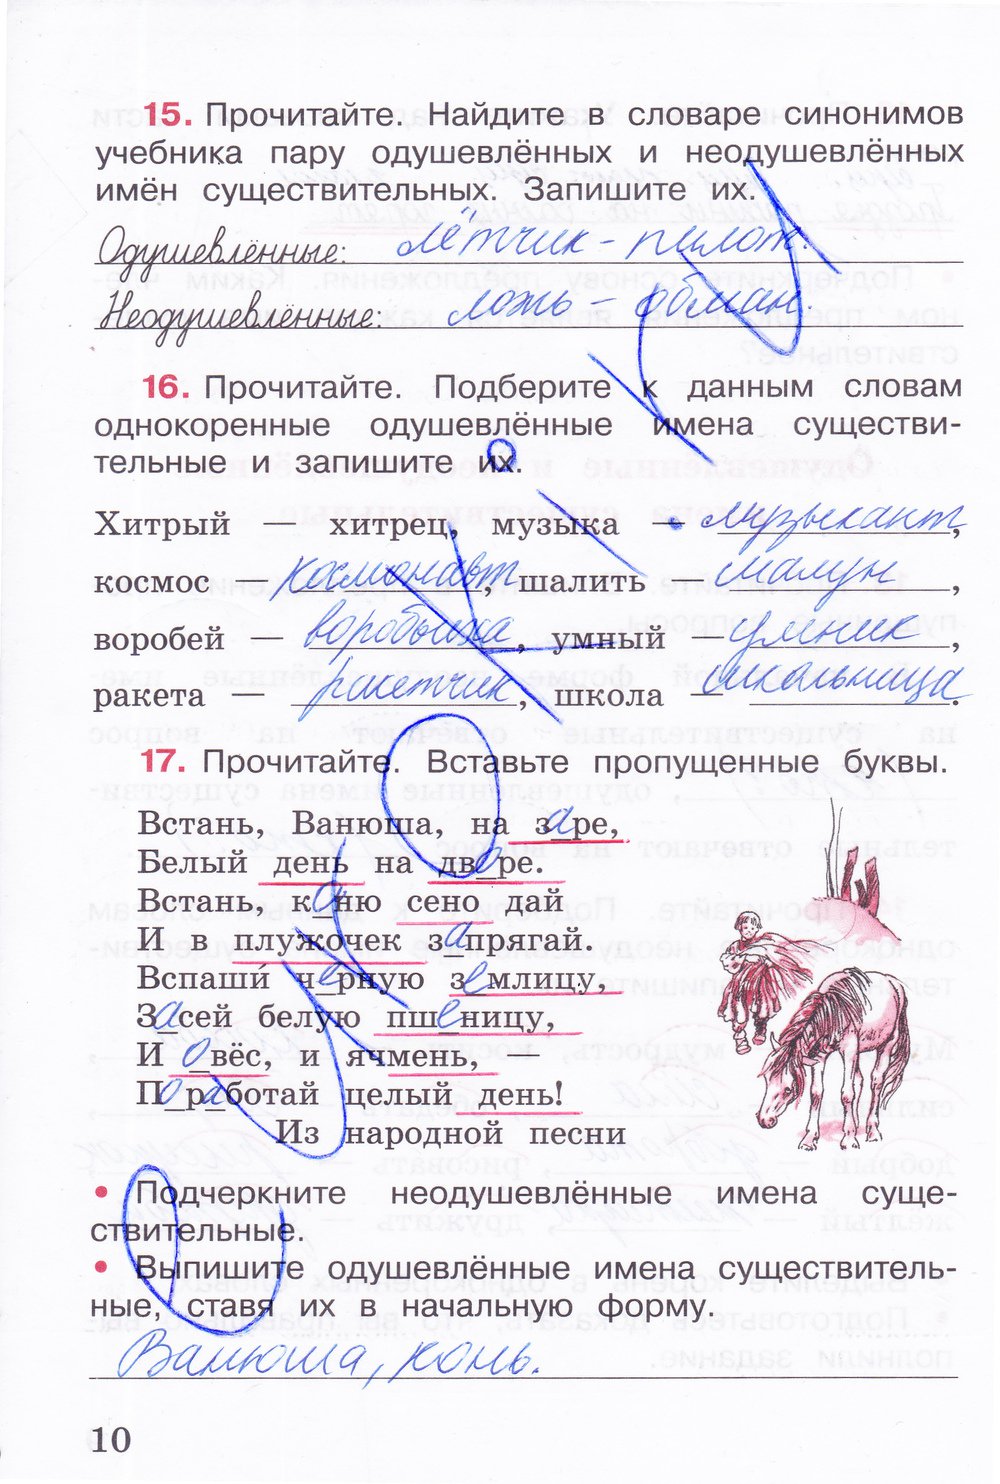 15. Прочитайте. Найдите в словаре синонимов
учебника пару одушевлённых и неодушевлённых
имён существительных. Запишите их.
Одушевлённые: лётчик – пилот.
Неодушевлённые: ложь – обман.
16. Прочитайте. Подберите к данным словам
однокоренные одушевлённые имена существи-
тельные и запишите их.
Хитрый — хитрец, музыка — музыкант,
космос — космонавт, шалить — шалун,
воробей — воробьиха, умный — умник,
ракета — ракетчик, школа — школьница.
17. Прочитайте. Вставьте пропущенные буквы.
Встань, Ванюша, на заре,
Белый день на дворе.
Встань, коню сено дай
И в плужочек запрягай.
Вспаши́ черную землицу,
Засей белую пшеницу,
И овёс, и ячмень, —
Поработай целый день!
Из народной песни
• Подчеркните неодушевлённые имена суще-
ствительные.
• Выпишите одушевлённые имена существитель-
ные, ставя их в начальную форму.
Ванюша, конь.
10